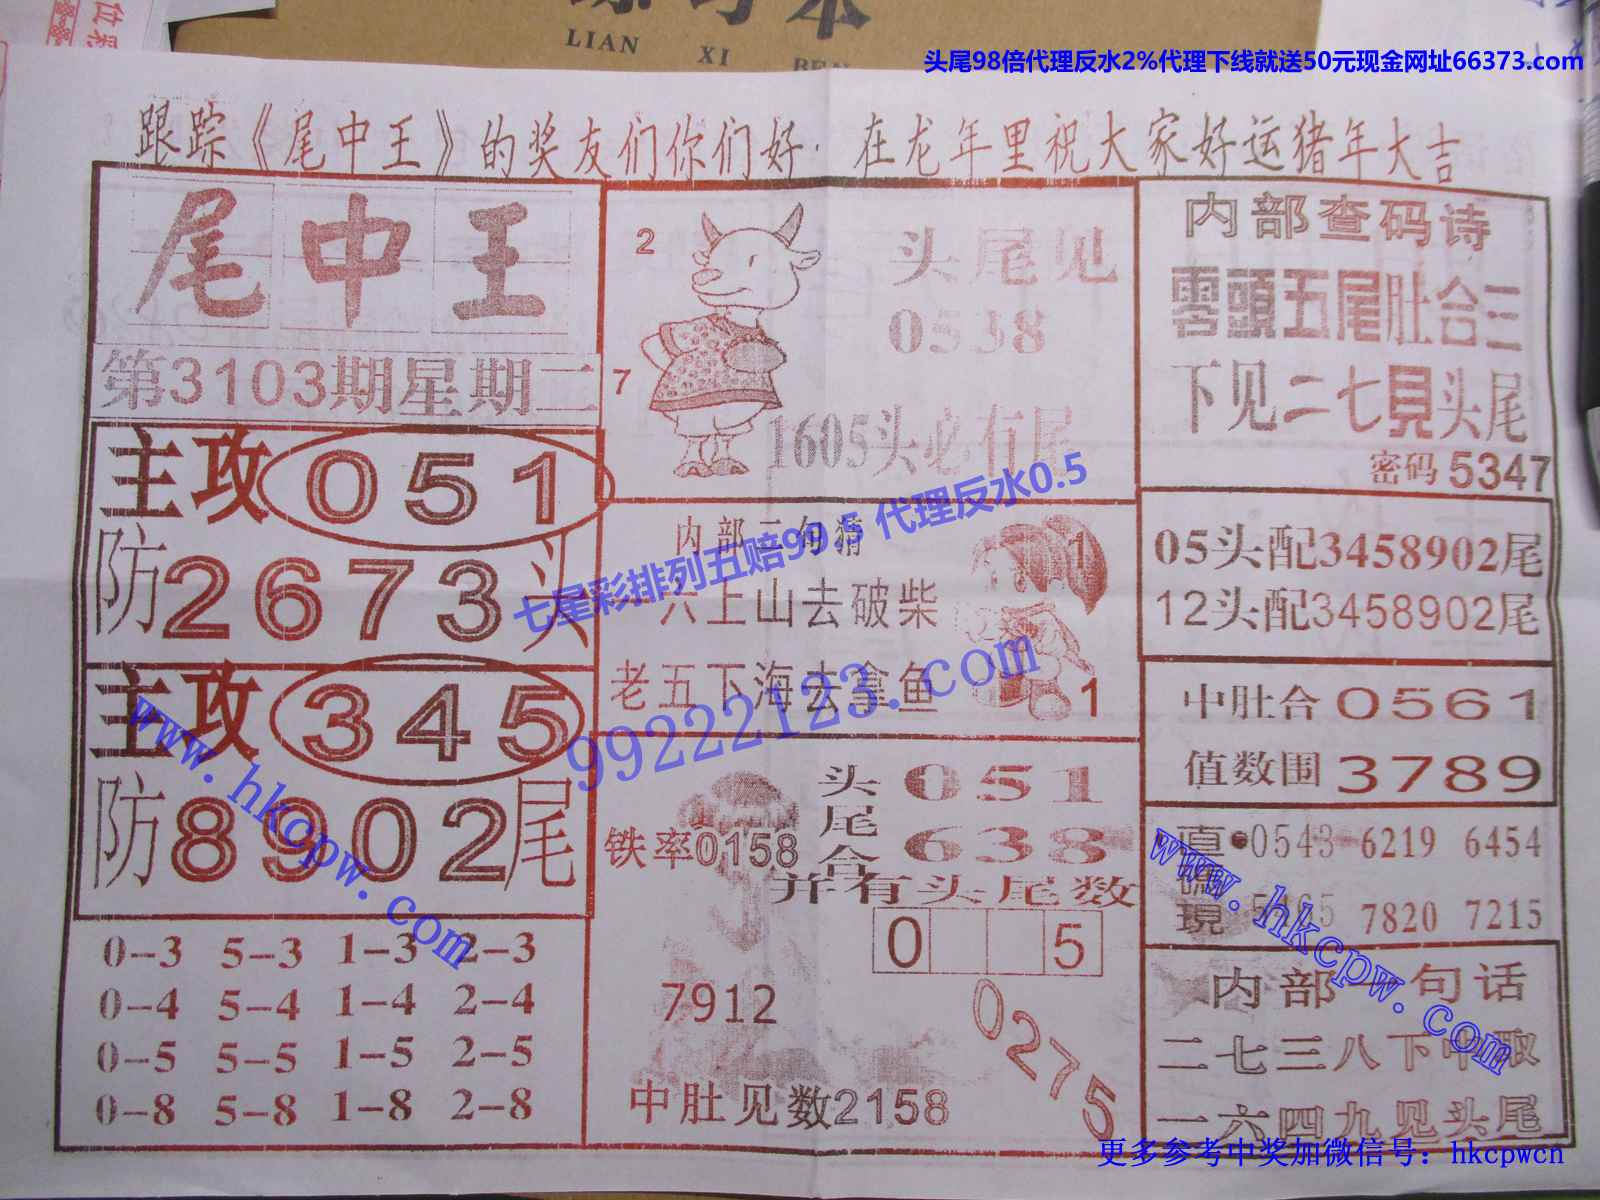 LIAN XI BEN
头尾98倍代理反水2%代理下线就送50元现金网址66373.com
跟踪《尾中王》的奖友们你们好·在龙年里祝大家好运猪年大吉
尾中王
第3103期星期二
主攻051
防2673头
主攻345
防8902尾
0-3 5-3 1-3 2-3
0-4 5-4 1-4 2-4
0-5 5-5 1-5 2-5
0-8 5-8 1-8 2-8
2
7
头尾见
0538
1605头必有尾
内部二句猜
六上山去破柴
老五下海去拿鱼
1
1
七星彩排列五赔99.5 代理反水0.5
99222123.com
铁率0158
头尾合
051
638
并有头尾数
0 5
7912
0275
中肚见数2158
内部查码诗
零頭五尾肚合三
下见二七見头尾
密码5347
05头配3458902尾
12头配3458902尾
中肚合0561
值数围3789
直 0543 6219 6454
現 7820 7215
内部一句话
二七三八下中取
一六四九见头尾
www.hkcpw.com
www.hkcpw.com
更多参考中奖加微信号：hkcpwcn